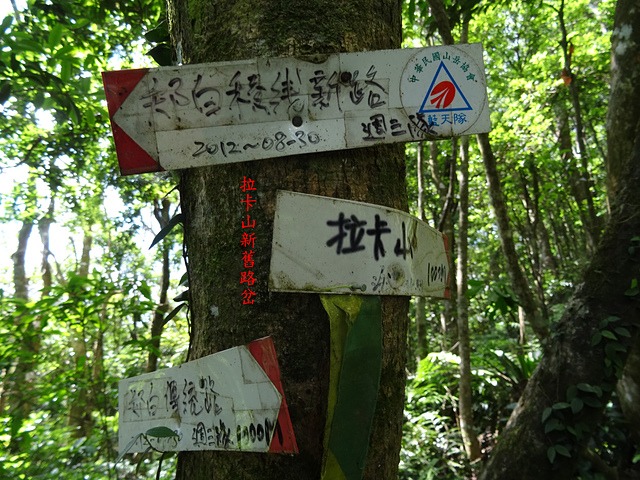 郄白稜線新路
2012~08-30
週三隊
中華民國山岳協會
藍天隊
拉卡山新舊路岔
拉卡山
100M
郄白傳統路
週三隊 1000M